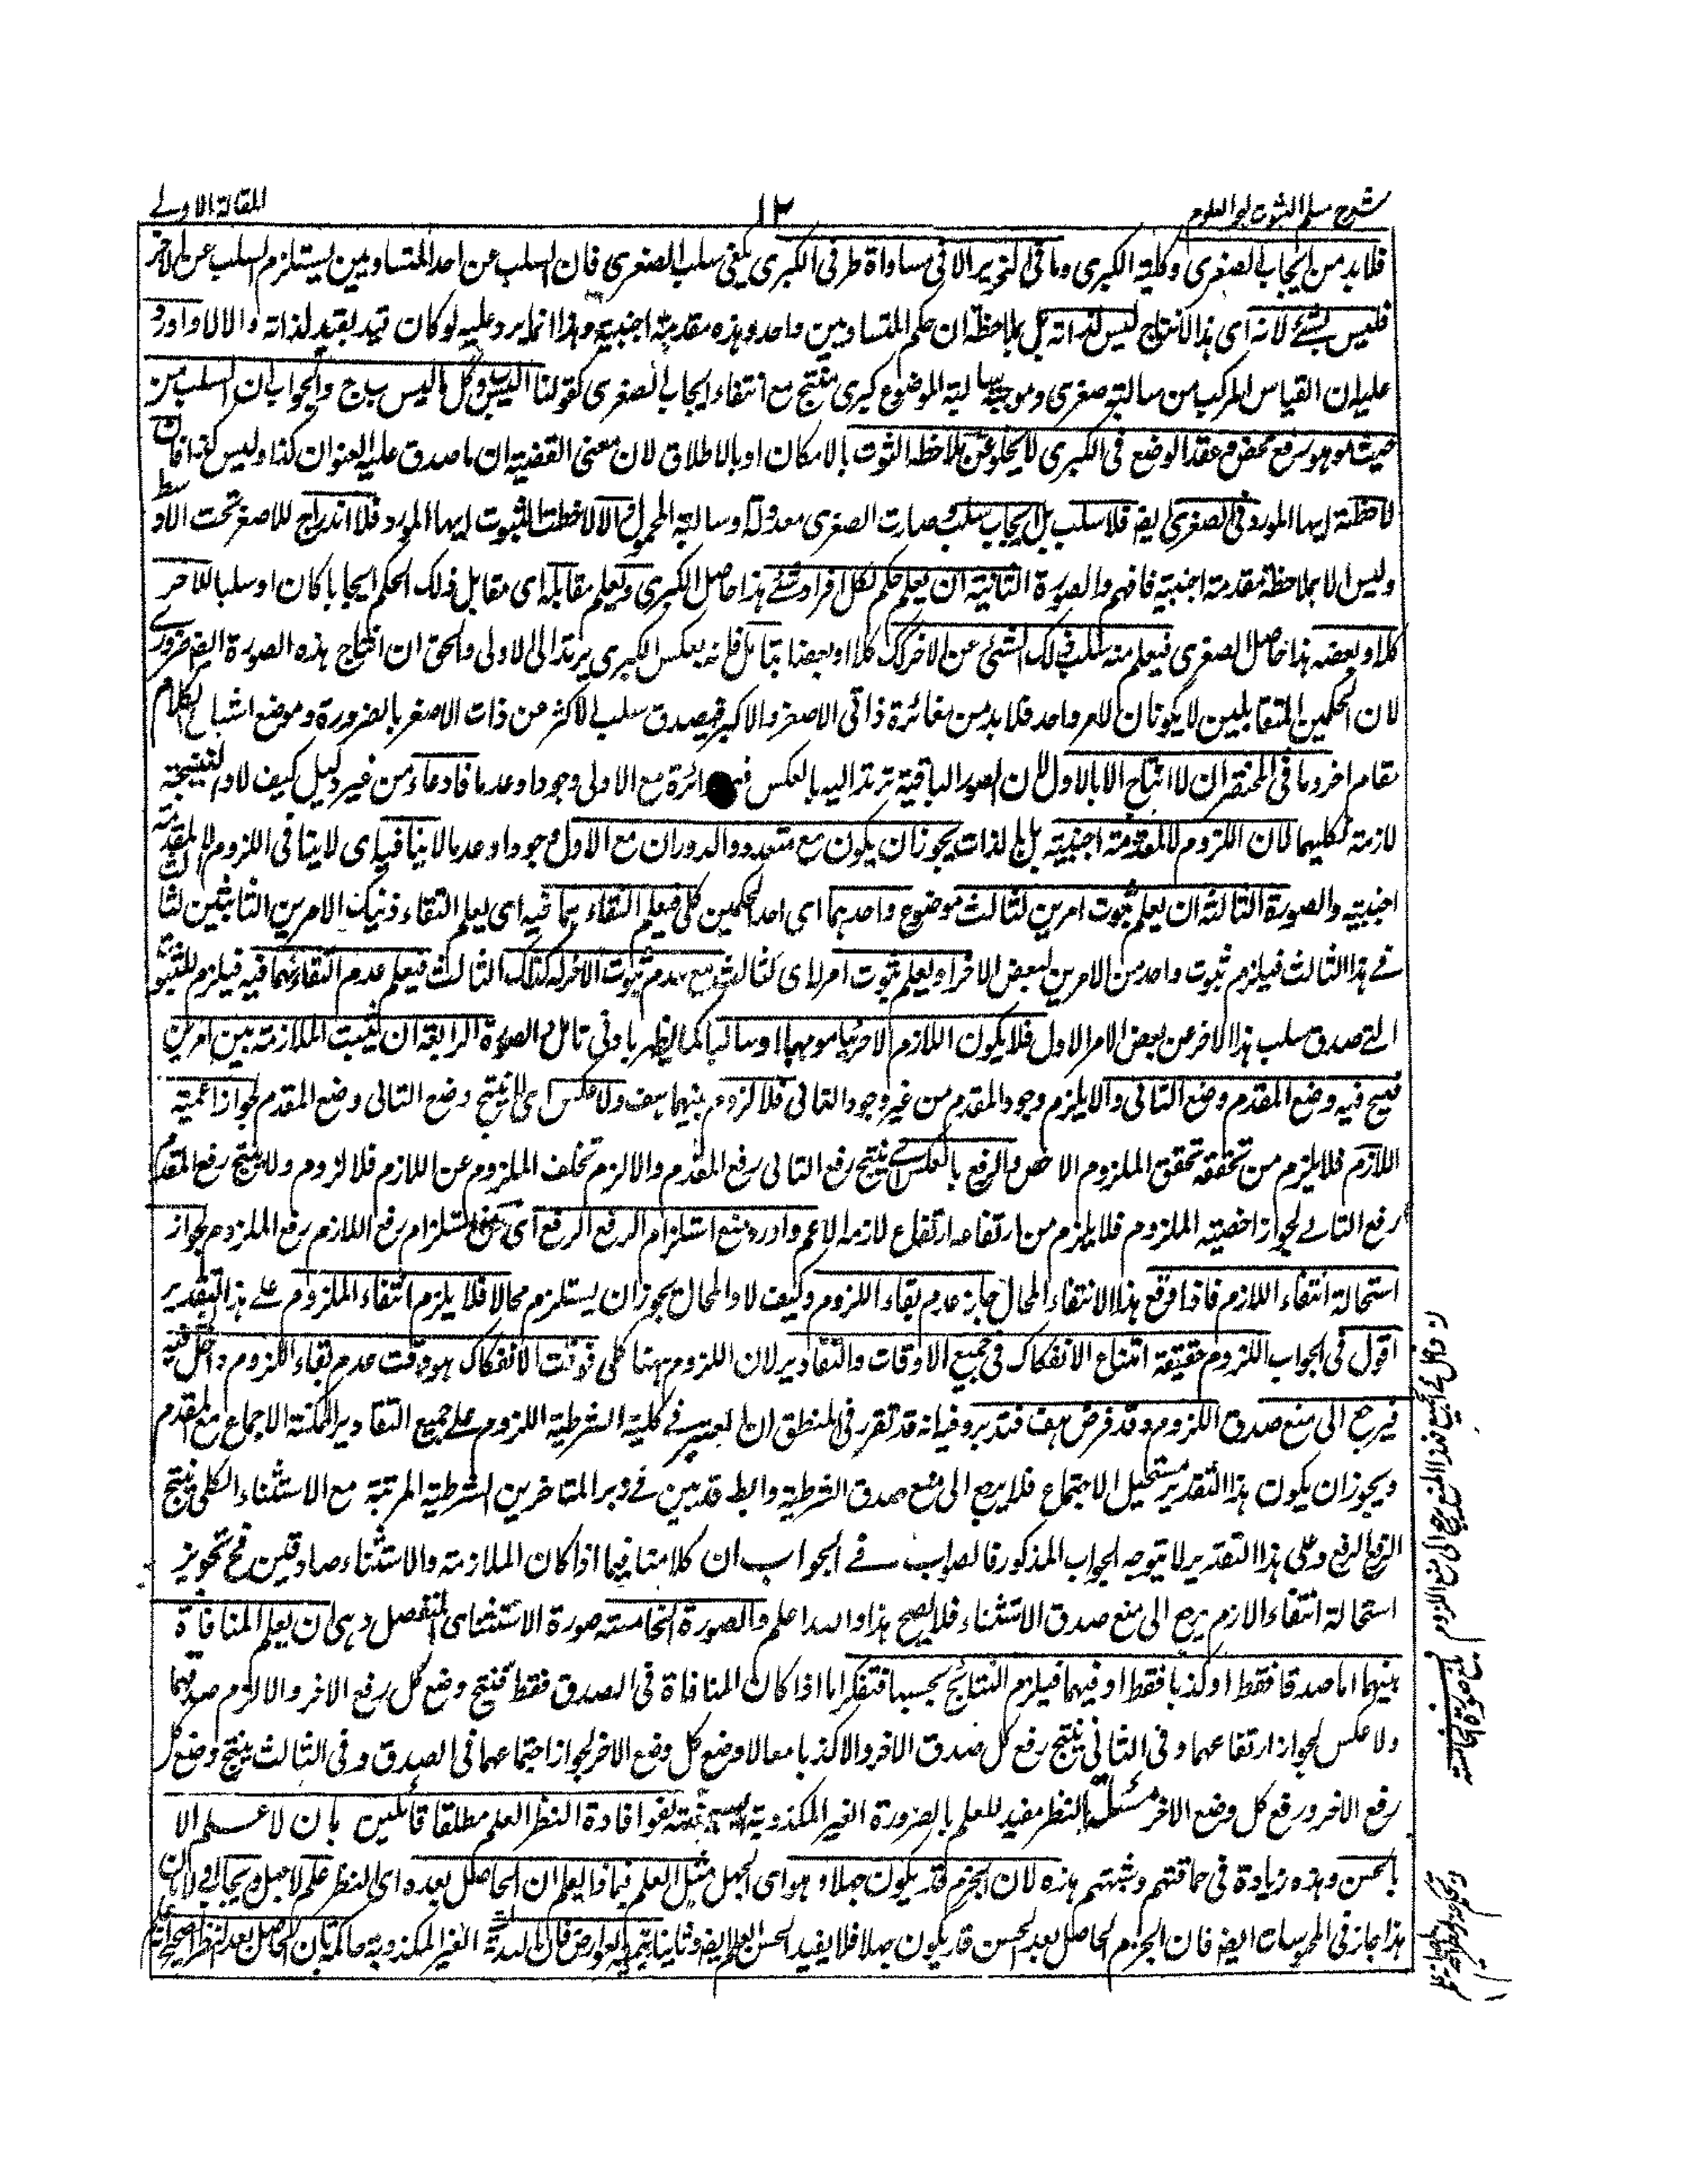 شرح مسلم الثبوت لبحر العلوم
١٢
المقالة الاولے
فلابد من ايجاب الصغرى وكلية الكبرى وما فى التحرير الا فى مساواة طرفى الكبرى يكفى سلب الصغرى فان السلب عن احد المتساويين يستلزم السلب عن الاخر
فليس بشئ لانه اى هذا الانتاج ليس لذاته بل بملاحظة ان حكم المتساويين واحد وهذه مقدمة اجنبية وهذا انما يرد عليه لو كان قيد بقيد لذاته والا لا واورد
عليه ان القياس المركب من سالبة صغرى وموجبة سالبة الموضوع كبرى منتج مع انتفاء ايجاب الصغرى كقولنا ا ليس ب وكل ما ليس ب ج والجواب ان السلب من
حيث هو هو رفع محض وعقد الوضع فى الكبرى لا يخلو عن ملاحظة الثبوت بالامكان او بالاطلاق لان معنى القضية ان ما صدق عليه العنوان كذا وليس كذا فان
لاحظته ايها المورد فى الصغرى ايضا فلا سلب بل ايجاب سلب وصارت الصغرى معدولة او سالبة المحمول والا لاحظت الثبوت ايها المورد فلا اندراج للاصغر تحت الاوسط
وليس الا بملاحظة مقدمة اجنبية فافهم والصورة الثانية ان يعلم حكم لكل افراد شئ هذا حاصل الكبرى ويعلم مقابله اى مقابل ذلك الحكم ايجابا كان او سلبا للاخر
كلا او بعضه هذا حاصل الصغرى فيعلم منه سلب ذلك الشئ عن الاخر كذلك كلا او بعضا بتامل فانه بعكس الكبرى يرتد الى الاولى والحق ان انتاج هذه الصورة ايضا ضرورے
لان الحكمين المتقابلين لا يكونان لامر واحد فلابد من مغائرة ذاتى الاصغر والاكبر فيصدق سلب الاكثر عن ذات الاصغر بالضرورة وموضع اشباع الكلام
مقام اخر وما فى المختصر ان لا انتاج الا بالاول لان الصور الباقية ترتد اليه بالعكس دائرة مع الاولى وجودا وعدما فادعاء من غير دليل كيف لا والنتيجة
لازمة لكليهما لان اللزوم لا لمقدمة اجنبية بل لذات يجوز ان يكون مع متعدد والدوران مع الاول وجودا وعدما لا ينافيه اى لا ينافى اللزوم لا لمقدمة
اجنبية والصورة الثالثة ان يعلم ثبوت امرين لثالث موضوع واحدهما اى احد الحكمين كلى فيعلم التقاءهما فيه اى يعلم التقاء ذينك الامرين الثابتين لثالث
فے هذا الثالث فيلزم ثبوت واحد من الامرين لبعض الاخر او يعلم ثبوت امر لاى لثالث مع عدم ثبوت الاخر له كذلك الثالث فيعلم عدم التقائهما فيه فيلزم
الے صدق سلب هذا الاخر عن بعض الامر الاول فلا يكون اللازم الا جزئيا موجبا او سالبا كما يظهر بادنى تامل والصورة الرابعة ان تثبت الملازمة بين امرين
فينتج فيه وضع المقدم وضع التالى والا يلزم وجود المقدم من غير وجود التالى فلا لزوم بينهما هف ولا عكس اى لا ينتج وضع التالى وضع المقدم لجواز اعمية
اللازم فلا يلزم من تحققه تحقق الملزوم الاخص والرفع بالعكس اے ينتج رفع التالى رفع المقدم والا لزم تخلف الملزوم عن اللازم فلا لزوم ولا ينتج رفع المقدم
رفع التالے لجواز اخصية الملزوم فلا يلزم من ارتفاعه ارتفاع لازمه الاعم واورد منع استلزام الرفع الرفع اى منع استلزام رفع اللازم رفع الملزوم لجواز
استحالة انتفاء اللازم فاذا وقع هذا الانتفاء المحال جاز عدم بقاء اللزوم وكيف لا والمحال يجوز ان يستلزم محالا فلا يلزم انتفاء الملزوم علے هذا التقدير
اقول فى الجواب اللزوم حقيقة امتناع الانفكاك فى جميع الاوقات والتقادير لان اللزوم ههنا كلى فوقت الانفكاك هو وقت عدم بقاء اللزوم داخل فيه
فيرجع الى منع صدق اللزوم وقد فرض هف فتدبر وفيه انه قد تقرر فى المنطق ان المعتبر فے كلية الشرطية اللزوم علے جميع التقادير الممكنة الاجتماع مع المقدم
ويجوز ان يكون هذا التقدير مستحيل الاجتماع فلا يرجع الى منع صدق الشرطية وايضا قد بين فے دبر المتاخرين الشرطية المرتبة مع الاستثناء الكلى ينتج
الرفع الرفع وعلى هذا التقدير لا يتوجه الجواب المذكور فالصواب فے الجواب ان كلامنا فيما اذا كان الملازمة والاستثناء صادقين فح تجويز
استحالة انتفاء الازم يرجع الى منع صدق الاستثناء فلا يصح هذا والله اعلم والصورة الخامسة صورة الاستثنائى المنفصل وهى ان يعلم المنافاة
بينهما اما صدقا فقط او كذبا فقط او فيهما فيلزم النتائج بحسبها فتفكر اما اذا كان المنافاة فى الصدق فقط فينتج وضع كل رفع الاخر والا لزم صدقهما
ولا عكس لجواز ارتفاعهما وفى الثانى ينتج رفع كل صدق الاخر والا كذبا معا لا وضع كل وضع الاخر لجواز اجتماعهما فى الصدق وفى الثالث ينتج وضع كل
رفع الاخر ورفع كل وضع الاخر مسئلة النظر مفيد للعلم بالضرورة الغير المكذوبة السمنية نفوا افادة النظر العلم مطلقا قائلين بان لا علم الا
بالحس وهذه زيادة فى حماقتهم وشبهتهم هذه لان الجزم قد يكون جهلا وهو اى الجهل مثل العلم فبماذا يعلم ان الحاصل بعده اى النظر علم لا جهل ويجاب اولا بان
هذا جاز فى المحسوسات ايضا فان الجزم الحاصل بعد الحس قد يكون جهلا فلا يفيد الحس العلم ايضا وثانيا بتميز العوارض فان البداهة الغير المكذوبة حاكمة بان الحاصل بعد النظر الصحيح علم